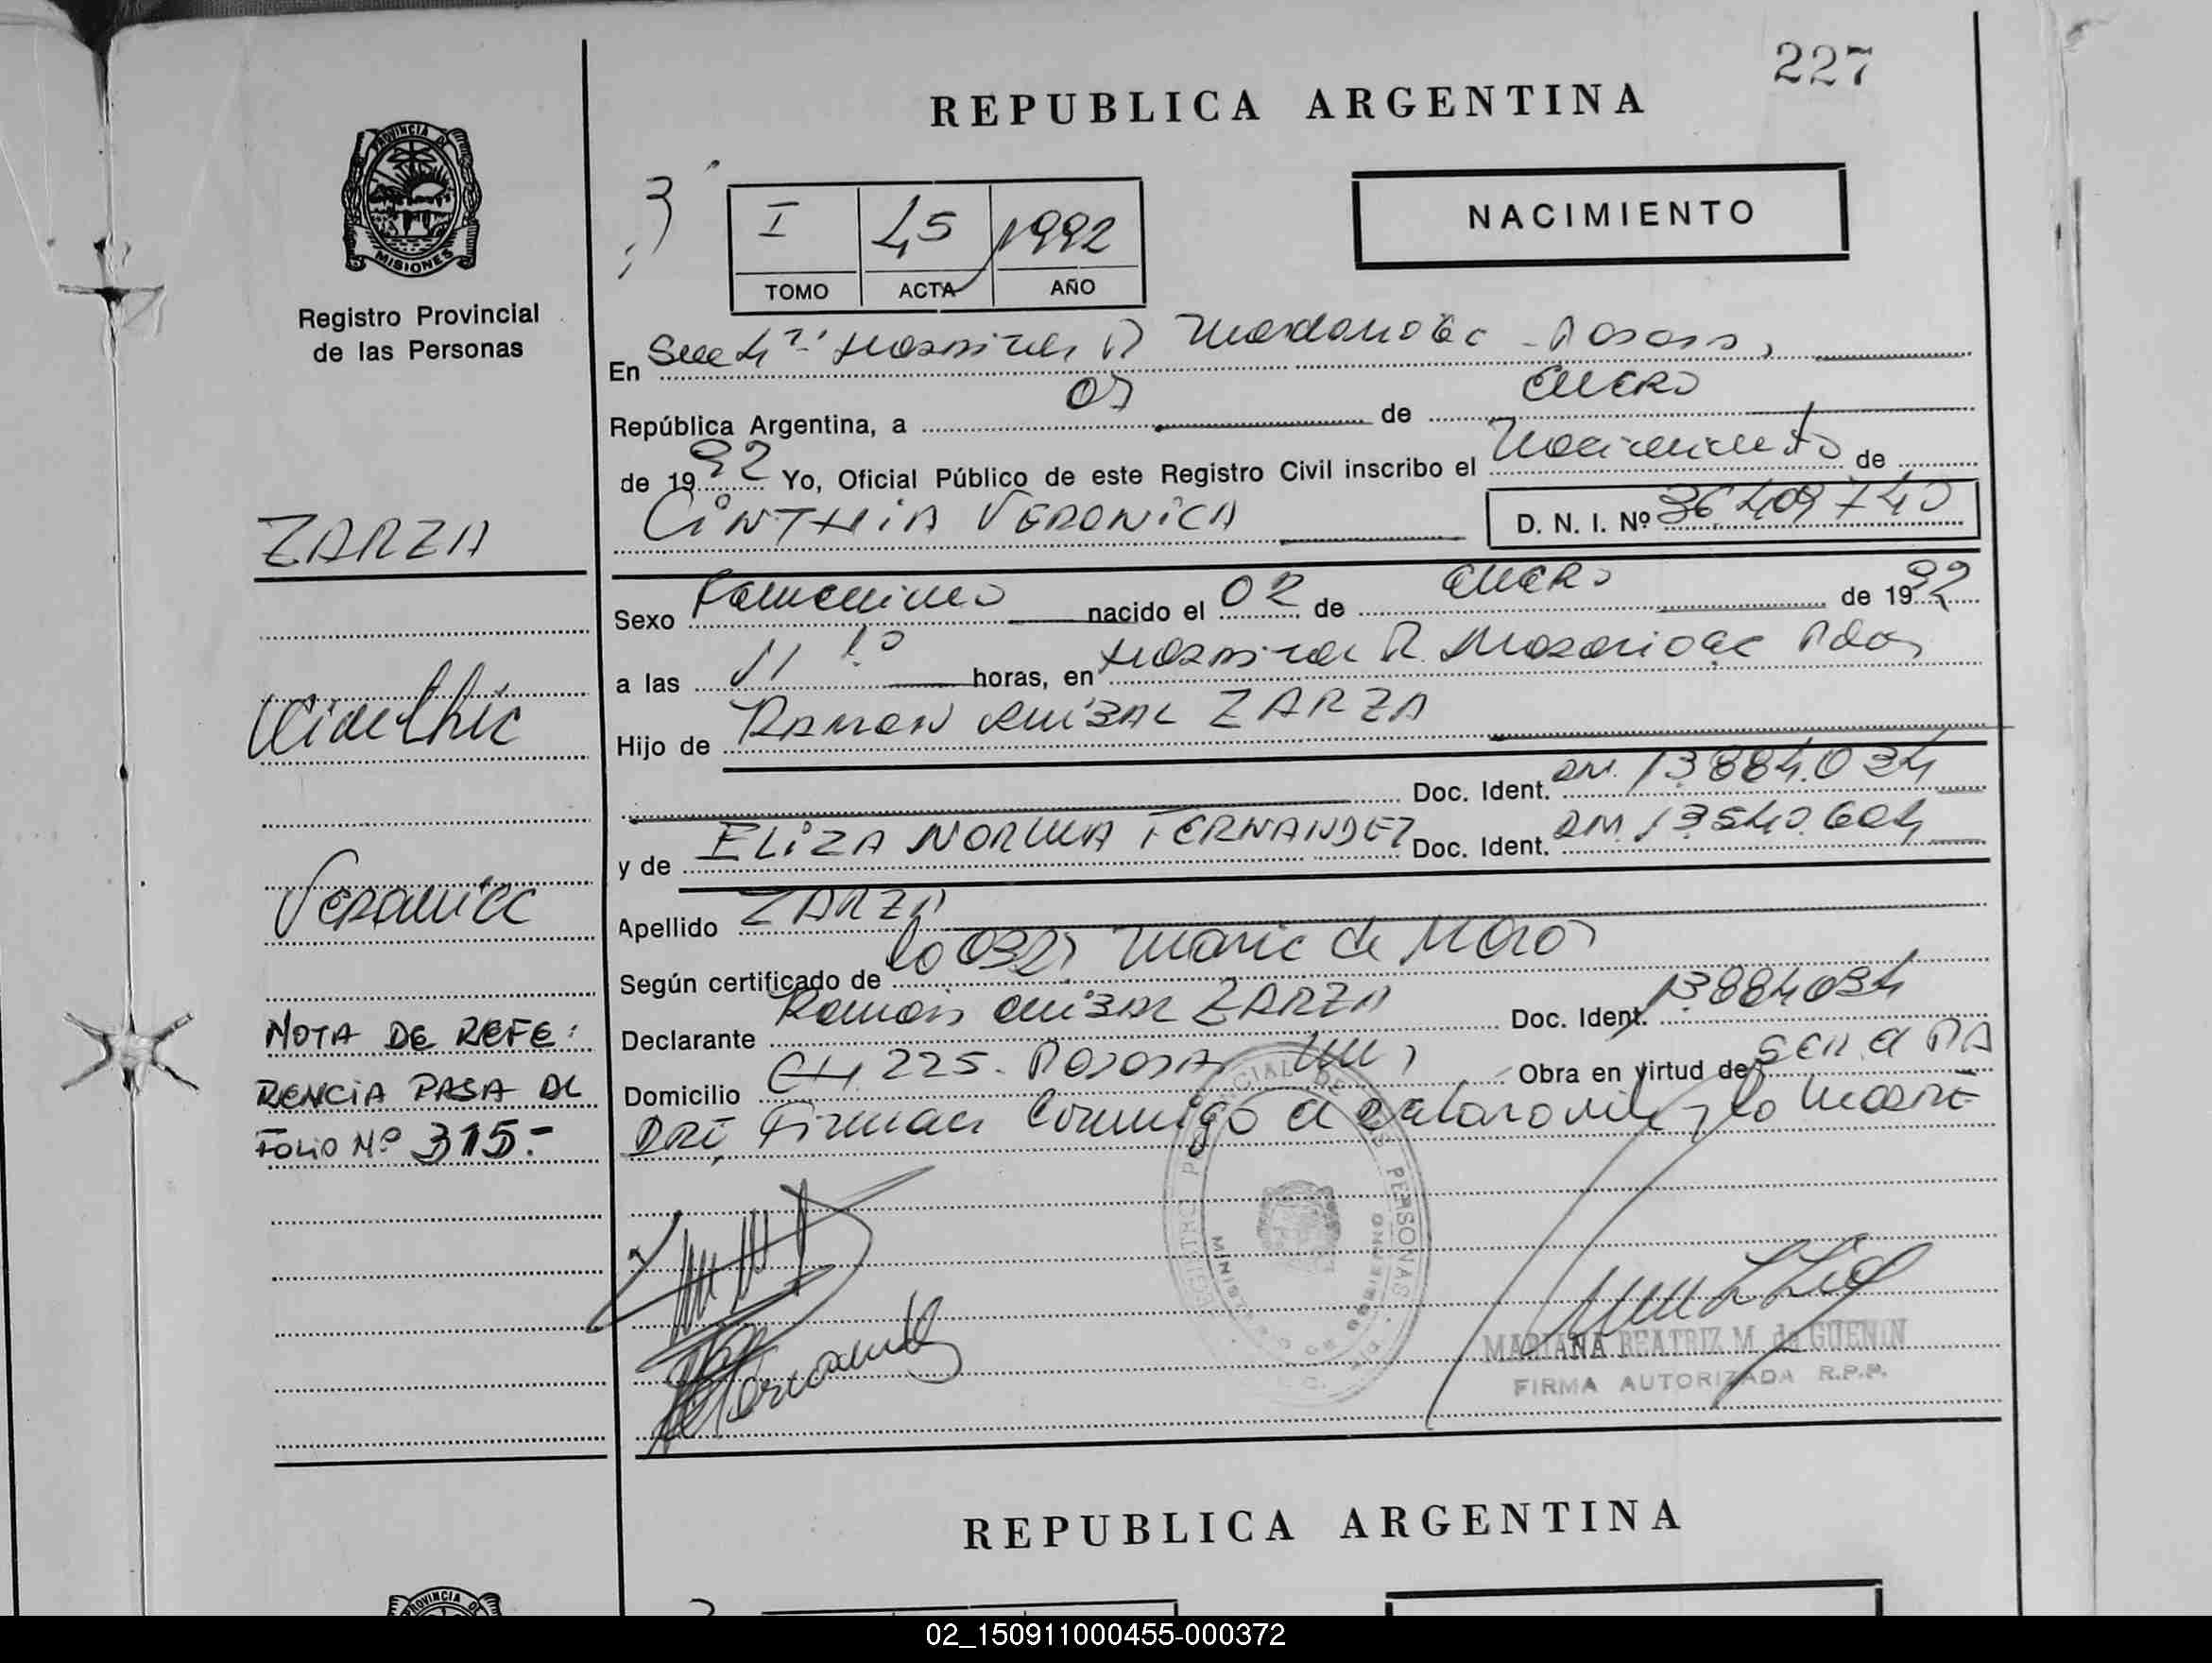 227
REPUBLICA ARGENTINA
PROVINCIA DE
MISIONES
Registro Provincial
de las Personas
I 45 1992
TOMO ACTA AÑO
NACIMIENTO
En
República Argentina, a de ENERO
de 1992 Yo, Oficial Público de este Registro Civil inscribo el Nacimiento de
CINTHIA VERONICA D. N. I. Nº 36.409740
ZARZA
Sexo Femenino nacido el 02 de ENERO de 1992
a las 11 10 horas, en Hospital R. Pdas
Hijo de RAMON ZARZA
Doc. Ident. 13.884.034
y de ELIZA NORMA FERNANDEZ Doc. Ident. 13.540.604
Veronica
Apellido ZARZA
Según certificado de
Declarante Ramon ZARZA Doc. Ident. 13884034
Domicilio CH 225. POSADAS Obra en virtud de SER el PA
DRE, Firman conmigo el y la madre
NOTA DE REFE:
RENCIA PASA AL
FOLIO Nº 315.-
REGISTRO PROVINCIAL DE LAS PERSONAS
MINISTERIO DE GOBIERNO
Fernandez
MARIANA BEATRIZ M. de GUENIN
FIRMA AUTORIZADA R.P.P.
REPUBLICA ARGENTINA
PROVINCIA DE
02_150911000455-000372